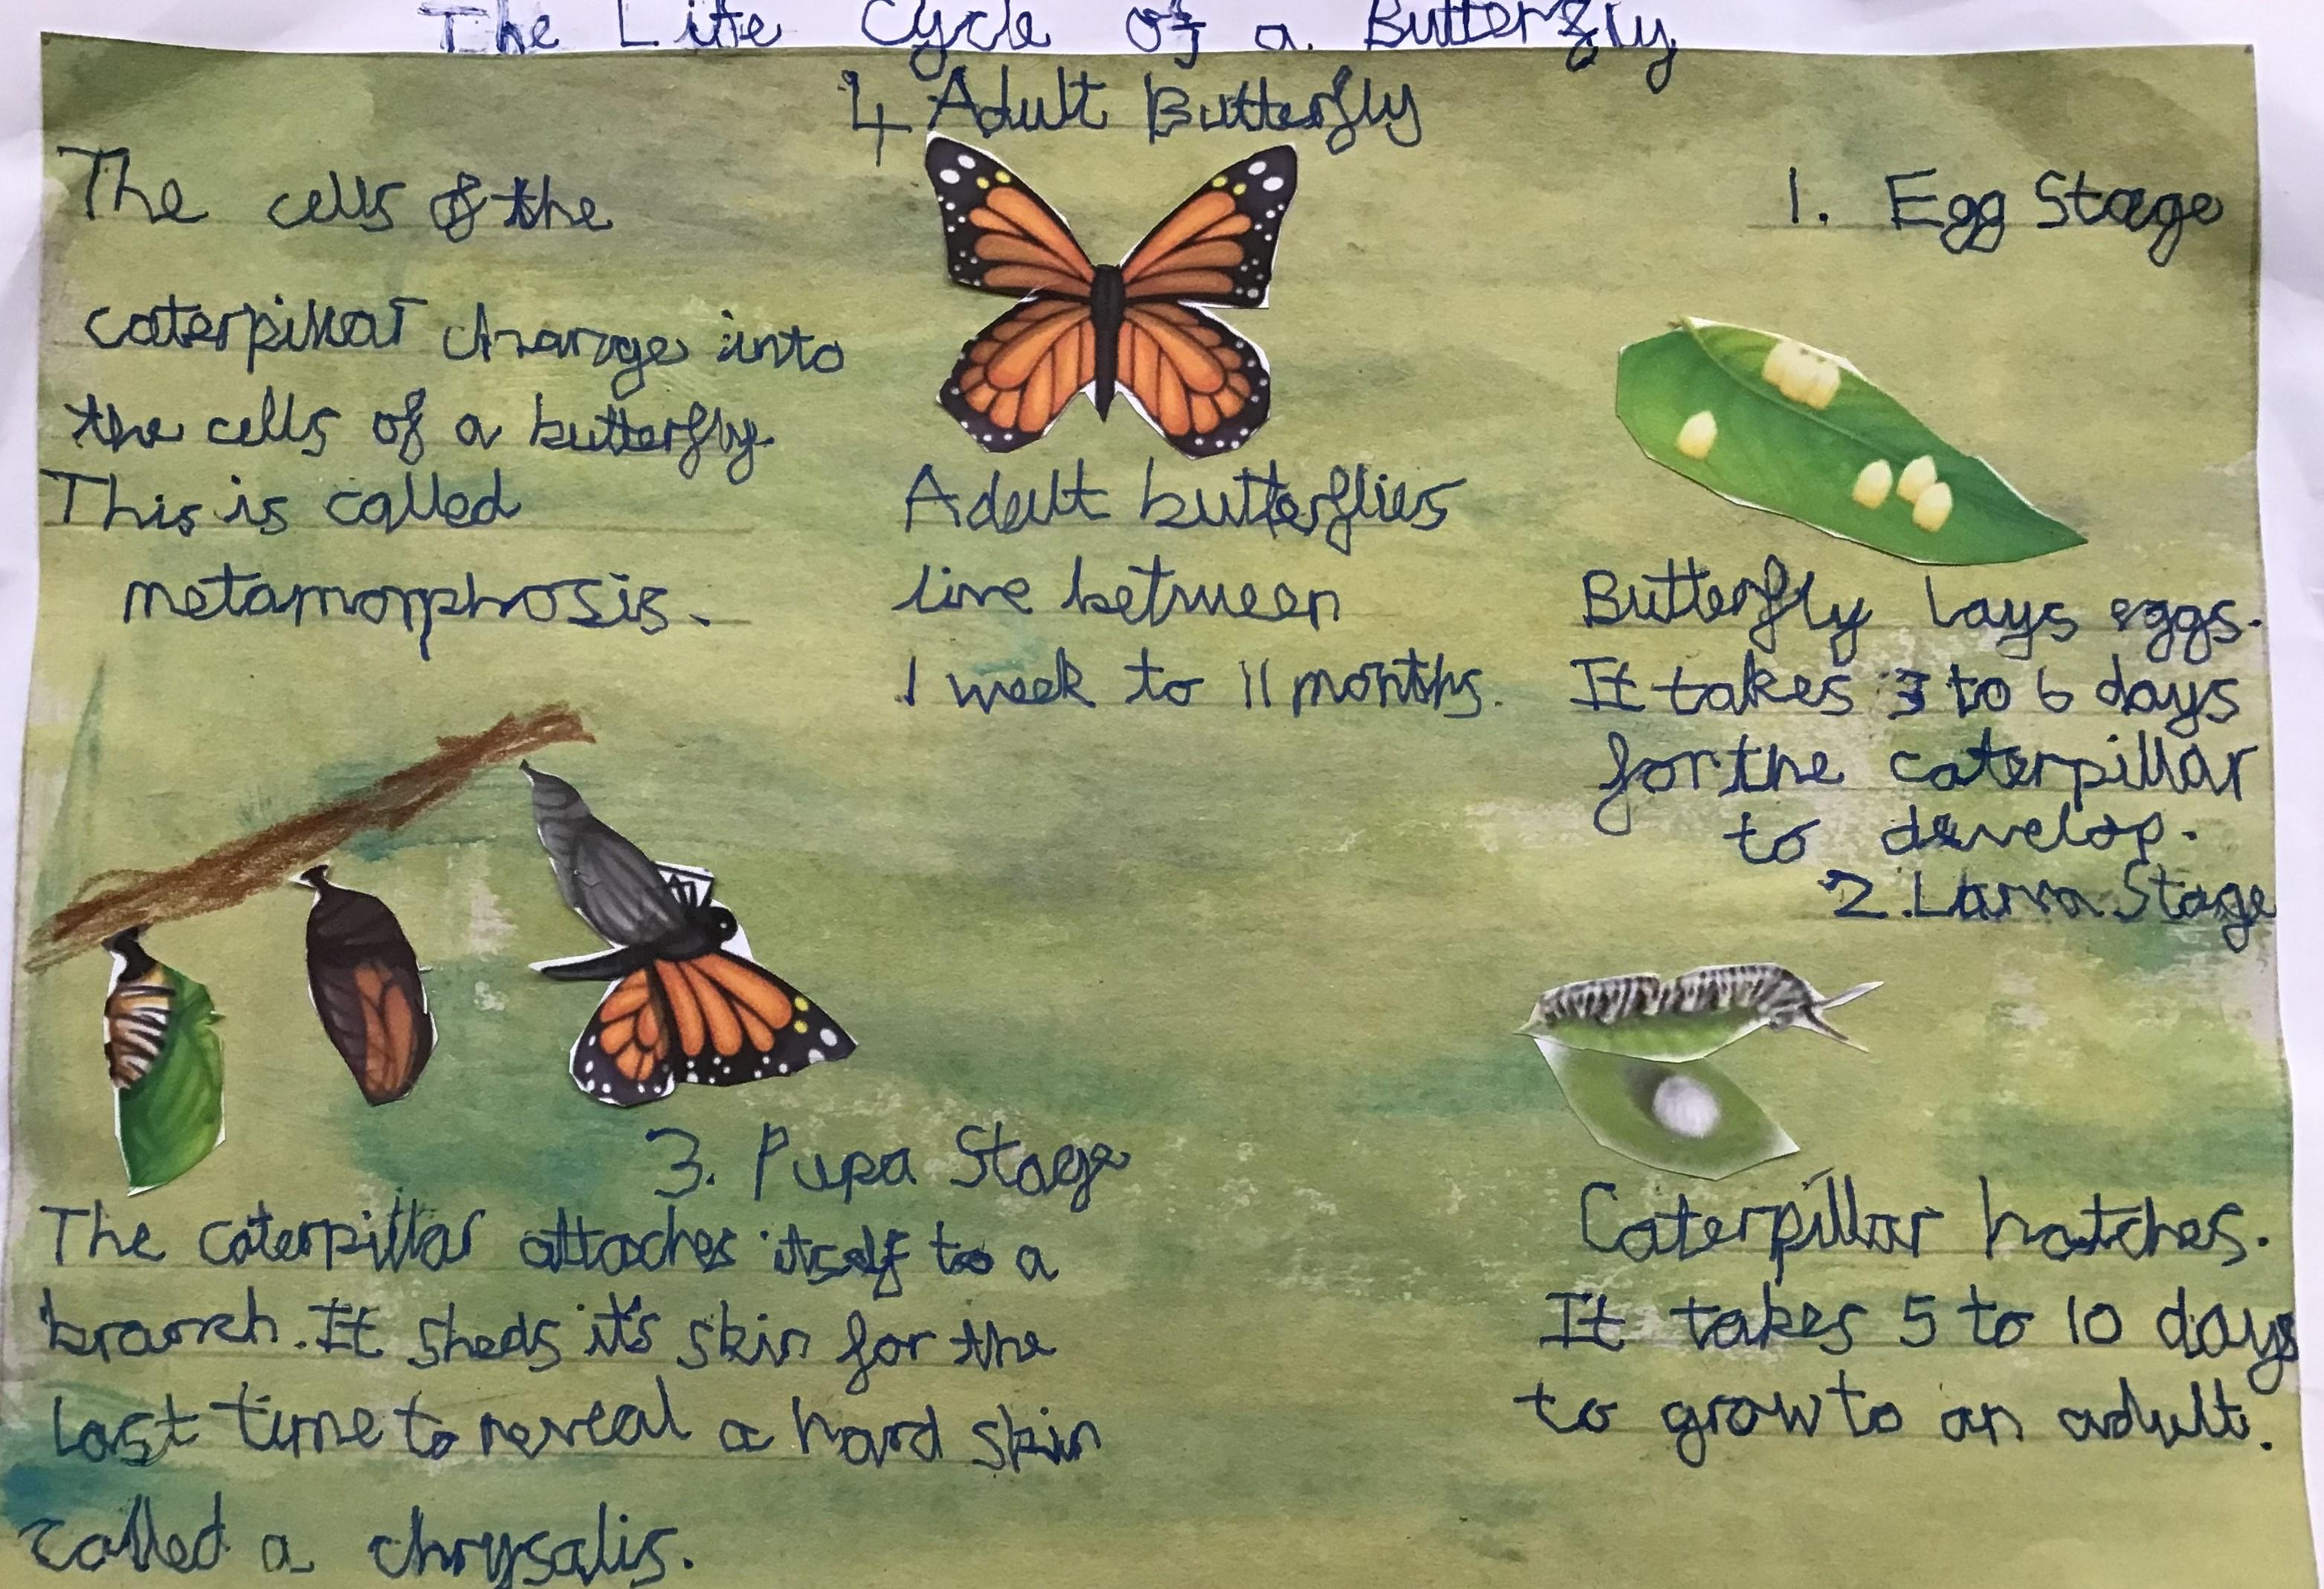 The Life Cycle of a Butterfly
4 Adult Butterfly
Adult butterflies
live between
1 week to 11 months.
1. Egg Stage
Butterfly lays eggs.
It takes 3 to 6 days
for the caterpillar
to develop.
2. Larva Stage
Caterpillar hatches.
It takes 5 to 10 days
to grow to an adult.
3. Pupa Stage
The caterpillar attaches itself to a
branch. It sheds it's skin for the
last time to reveal a hard skin
called a chrysalis.
The cells of the
caterpillar change into
the cells of a butterfly.
This is called
metamorphosis.